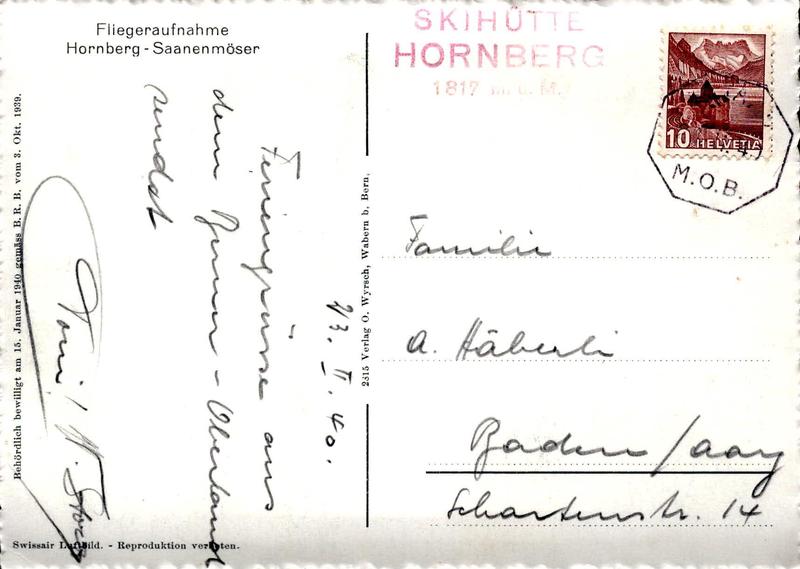 Fliegeraufnahme
Hornberg - Saanenmöser
SKIHÜTTE
HORNBERG
1817 m. ü. M.
10 HELVETIA
M.O.B.
23. II. 40.
Feriengrüsse aus
dem Berner-Oberland
sendet
Familie
A. Häberli
Baden/Aarg
Schartenstr. 14
Behördlich bewilligt am 15. Januar 1940 gemäss B. R. B. vom 3. Okt. 1939.
2315 Verlag O. Wyrsch, Wabern b. Bern.
Swissair Luftbild. - Reproduktion verboten.